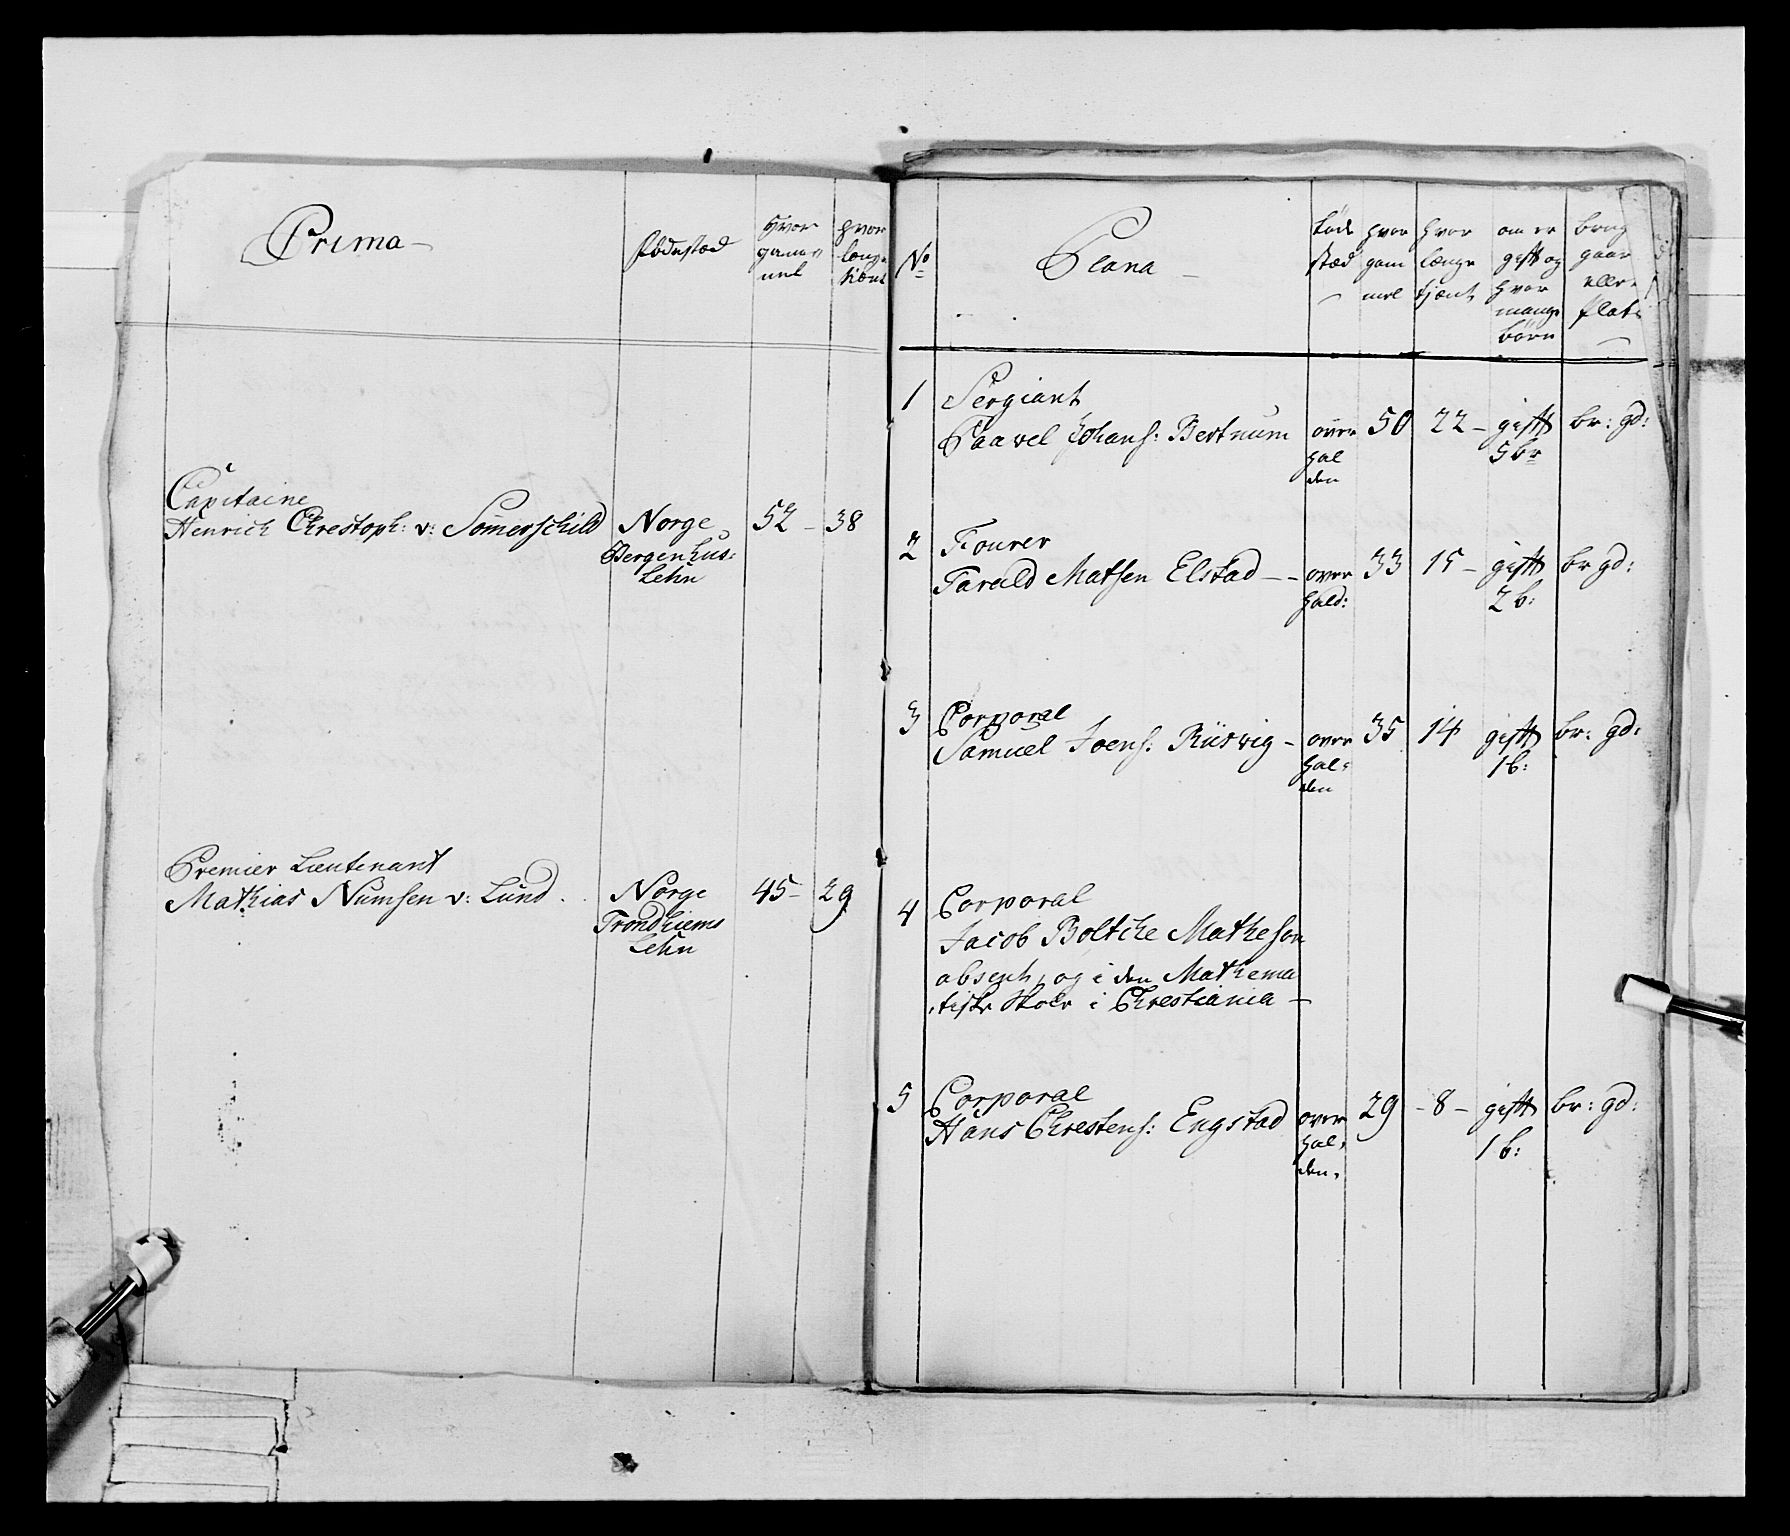 Prima
födested
Hvor gammel
hvor længe tiænt
Capitaine
Henrich Chrestoph: v: Sömerschild
Norge
Bergenhus:
Lehn
52 - 38
Premier Lieutenant
Mathias Numsen v: Lund
Norge
Trondhiems
Lehn
45 - 29
No
Plana
föde sted
hvor gam mel
hvor længe tjent
om er gift og hvor mange börn
brug gaar eller plads
1
Sergiant
Paavel Johans: Bertnum
over hal den
50
22 -
gift 5 br
br: gd:
2
Fourer
Tarald Matsen Elstad - -
over hald:
33
15 -
gift 2 b:
br gd:
3
Corporal
Samuel Joens: Rüsvig -
over hal: den
35
14
gift 1 b:
br: gd:
4
Corporal
Jacob Boltche Matheson
absent, og i den Mathema
tiske Skole i Chrestiania -
5
Corporal
Hans Chrestens: Engstad
over hal: den.
29
- 8 -
gift 1 b:
br: gd: